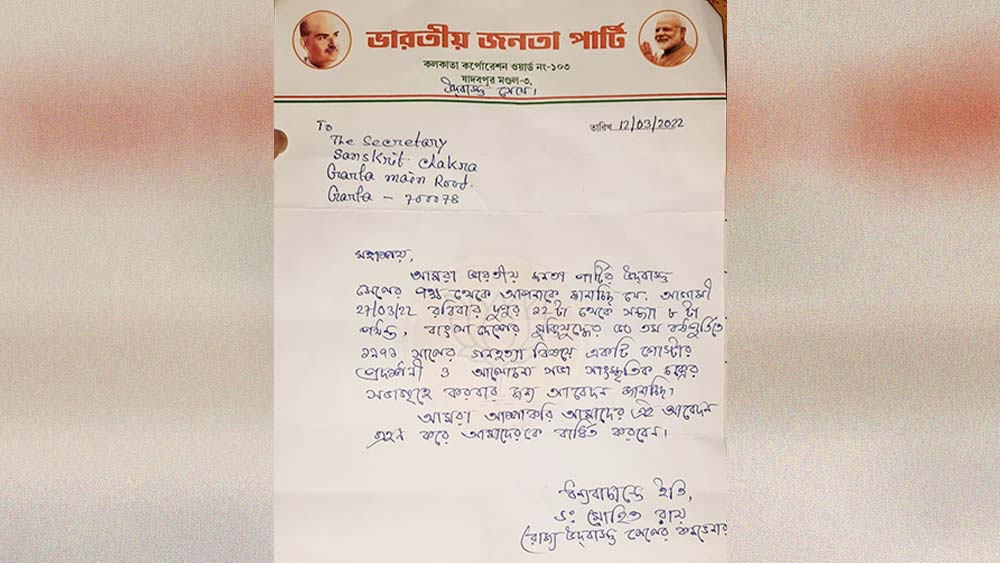 ভারতীয় জনতা পার্টি
কলকাতা কর্পোরেশন ওয়ার্ড নং-১০৩
যাদবপুর মণ্ডল-৩,
উদ্বাস্তু সেল।
তারিখ 12/03/2022
To
The Secretary
Sanskrit Chakra
Garfa main Road.
Garfa – 700078
মহাশয়,
আমরা ভারতীয় জনতা পার্টির উদ্বাস্তু
সেলের পক্ষ থেকে আপনাকে জানাচ্ছি যে, আগামী
27/03/22 রবিবার দুপুর ১২টা থেকে সন্ধ্যা ৮টা
পর্যন্ত, বাংলাদেশের মুক্তিযুদ্ধের ৫০ তম বর্ষপূর্তিতে
১৯৭১ সালের গণহত্যা বিষয়ে একটি পোস্টার
প্রদর্শনী ও আলোচনা সভা সাংস্কৃতিক চক্রের
সভাগৃহে করবার জন্য আবেদন জানাচ্ছি।
আমরা আশাকরি আমাদের এই আবেদন
গ্রহন করে আমাদেরকে বাধিত করবেন।
ধন্যবাদান্তে ইতি,
ডঃ মোহিত রায়
(রাজ্য উদ্বাস্তু সেলের কনভেনার